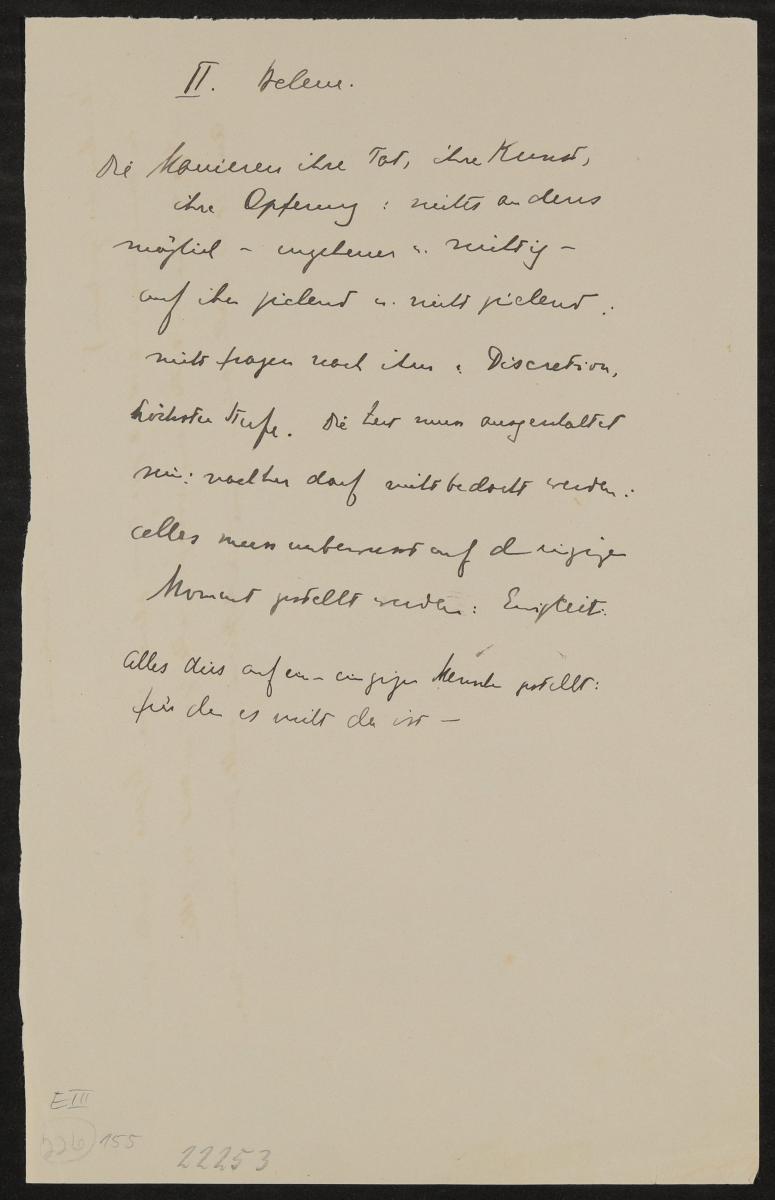 II. Helene.
Die Manieren ihre Tat, ihre Kunst,
ihre Opferung: nichts anders
möglich – ungeheuer u. nichtig –
auf ihn zielend u. nicht zielend:
nicht fragen nach ihm: Discretion,
höchster Stufe. Die Zeit muss ausgestaltet
sein: nachher darf nicht bedacht werden:
alles muss unbewusst auf d einzigen
Moment gestellt werden: Ewigkeit.
Alles dies auf ein einzigen Menschen gestellt:
für den es nicht da ist –
EIII
226 155
22253